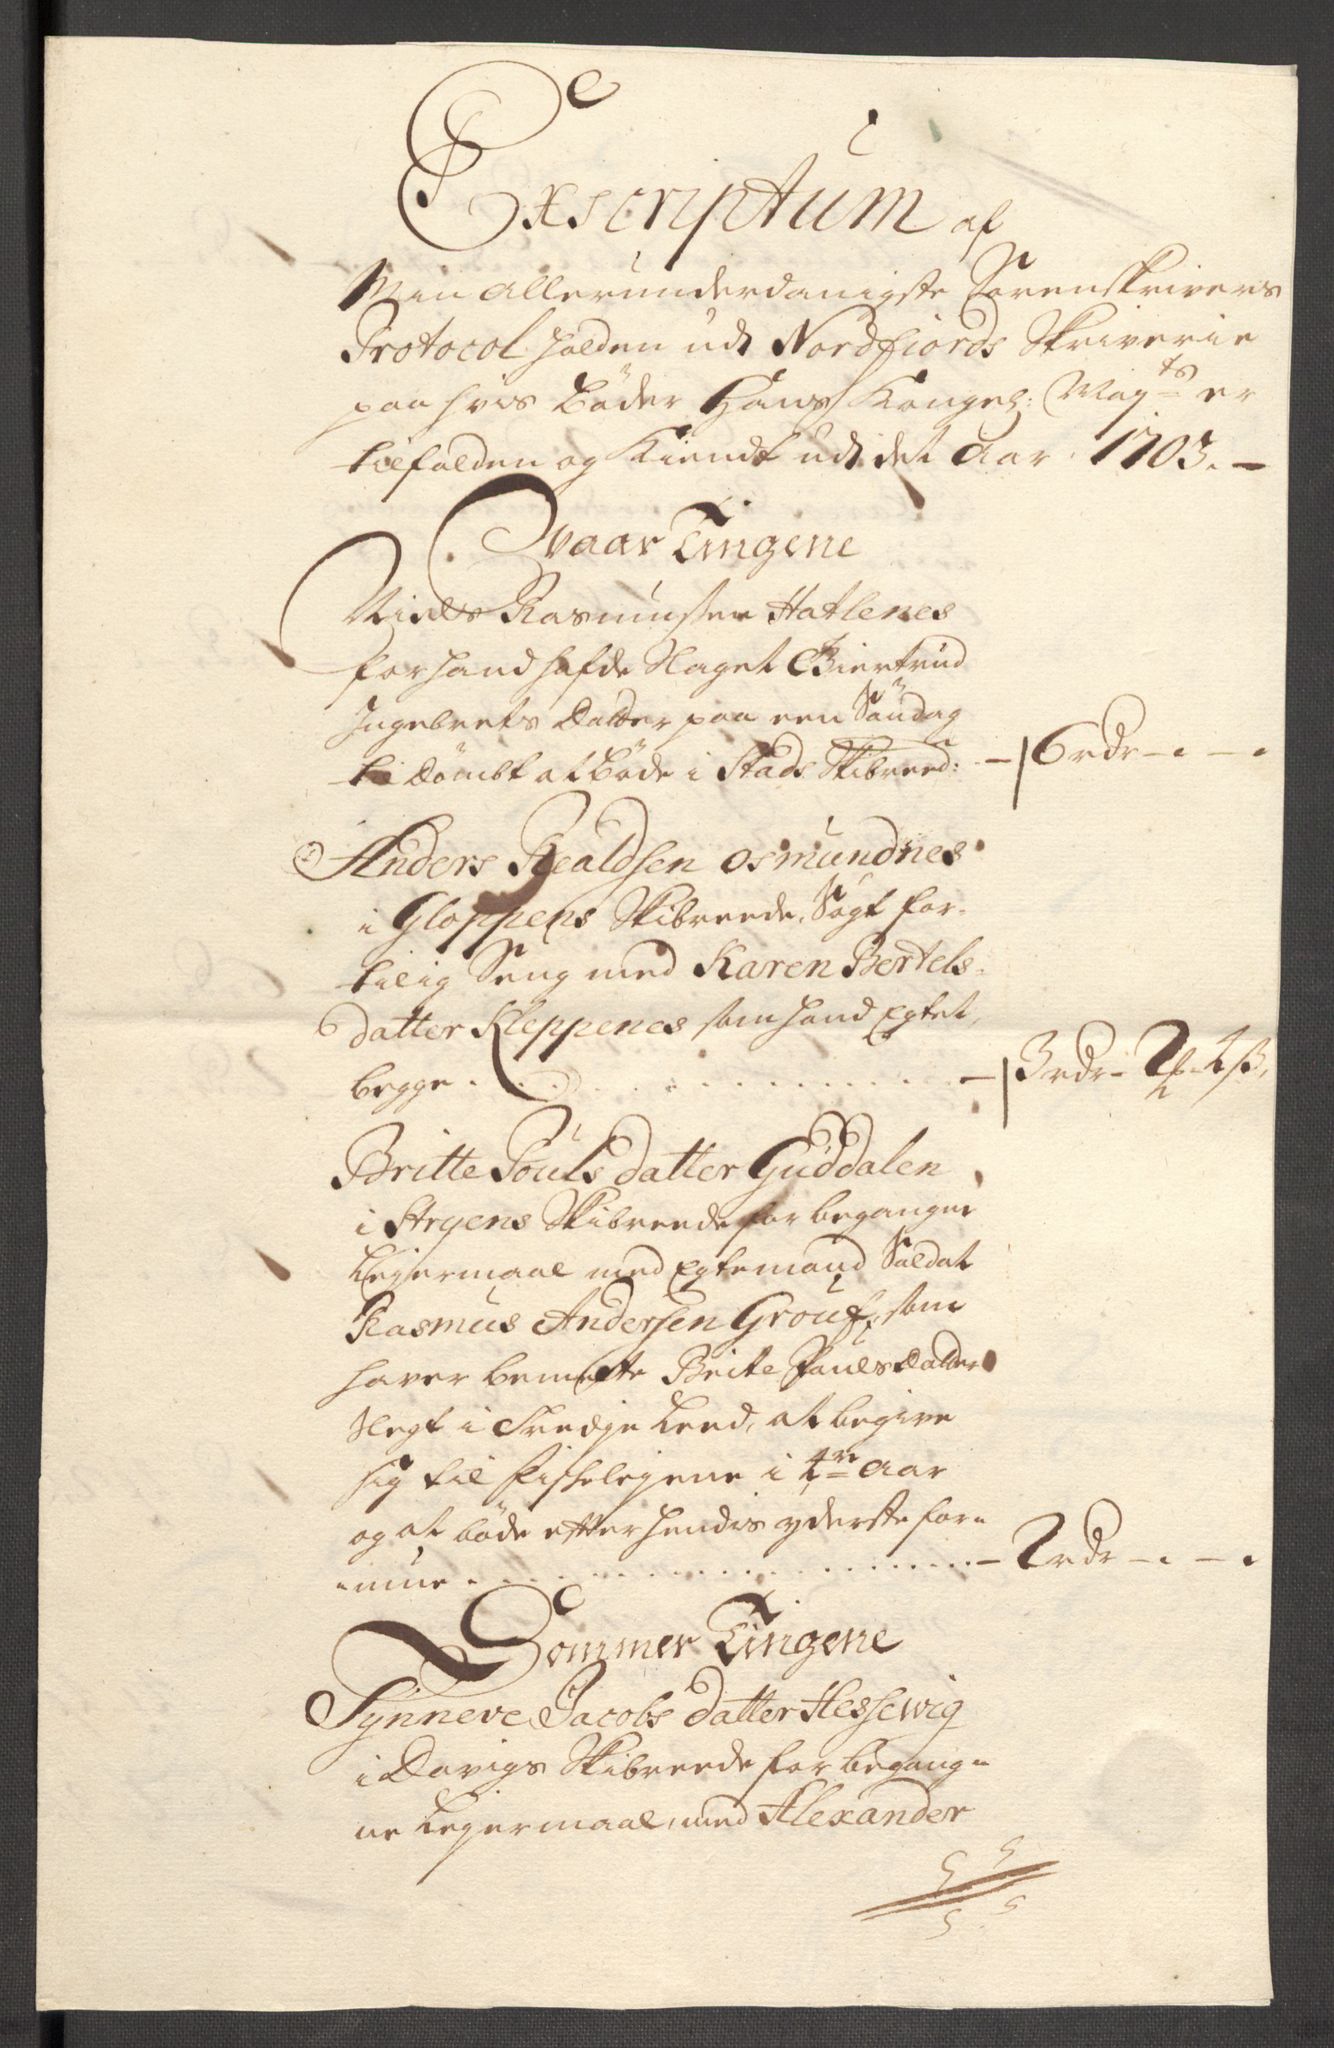 Exscriptum af
Min allerunderdanigste Sorenskrivers
Protocol holden udi Nordfiords Skriverie
paa hvis bøder Hans Kongel: Mayts er
tilfalden og Kiendt udi det Aar 1703.
Vaar Tingene
Niels Rasmusen Hatlenes
for hand hafde slaget Giertrud
Ingebrets datter paa een Søndag
til dømbt at bøde i Stads Skibreed: 6 rdr
Anders Realdsen Osmundnes
i Gloppens Skibreede, Søgt for-
tilig Seng med Karen Bertels-
datter Kleppenes som hand Egtet,
begge 3 rdr 2 4 ß
Britte Pouls datter Guddalen
i Stryens Skibreede for begangne
Leyermaal med Egtemand Soldat
Rasmus Andersen Grouf, som
haver bemelte Brite Pouls datter
slegt i tredje Leed, at begive
sig til fiskelejene i 4re Aar
og at bøde efter hendis yderste for-
mue 2 rdr
Sommer Tingene
Synneve Jacobs datter Hessewig
i Davigs Skibreede for begang-
ne Leyermaal, med Alexander